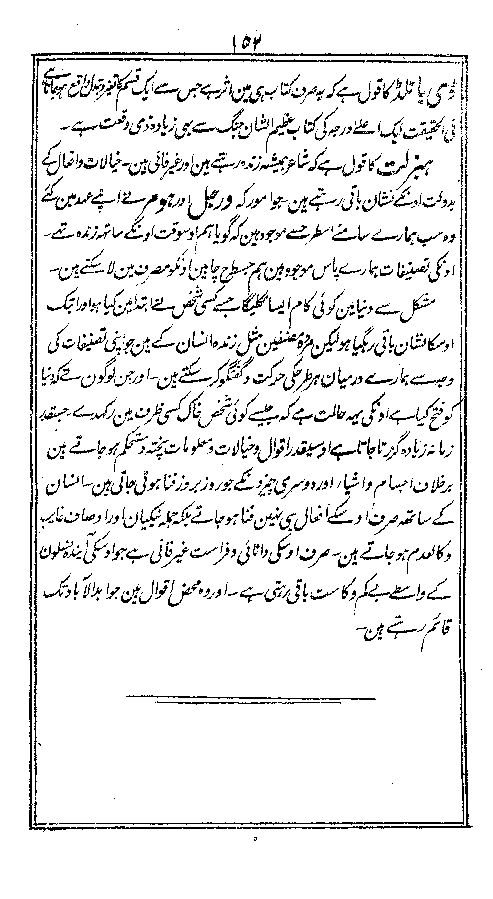 ۱۵۲
ڈی پائلڈ کا قول ہے کہ یہ صرف کتاب ہی مین اثر ہے جس سے ایک قسم کا تغیر و تبدل واقع ہو جاتا ہے
فی الحقیقت ایک اعلےٰ درجہ کی کتاب عظیم الشان جنگ سے بھی زیادہ ذی وقعت ہے ۔
ہیزلٹ کا قول ہے کہ شاعر ہمیشہ زندہ رہتے ہین اور غیر فانی ہین ۔ خیالات و افعال کے
بدولت اونکے نشان باقی رہتے ہین ۔ جو امور کہ ورجل اور ہومر نے اپنے عہد مین کئے
وہ سب ہمارے سامنے اسطرح سے موجود ہین کہ گویا ہم اوسوقت اونکے ساتھ زندہ تھے ۔
اونکی تصنیفات ہمارے پاس موجود ہین ہم جسطرح چاہین اونکو مصرف مین لا سکتے ہین ۔
مشکل سے دنیا مین کوئی کام ایسا نکلیگا جسے کسی شخص نے ابتدا مین کیا ہو اور ابتک
اوسکا نشان باقی رہگیا ہو لیکن مردہ مصنفین مثل زندہ انسان کے ہین جو اپنی تصنیفات کی
وجہ سے ہمارے درمیان ہر طرحکی حرکت و گفتگو کر سکتے ہین ۔ اور جن لوگون نے کہ دنیا
کو فتح کیا ہے اونکی یہہ حالت ہے کہ جیسے کوئی شخص خاک کسی ظرف مین رکھدے ۔ جسقدر
زمانہ زیادہ گزرتا جاتا ہے اوسیقدر اقوال و خیالات و معلومات پختہ و مستحکم ہو جاتے ہین
برخلاف اجسام و اشیاء اور دوسری چیزونکے جو روز بروز فنا ہوتی جاتی ہین ۔ انسان
کے ساتھ صرف اوسکے افعال ہی نہین فنا ہو جاتے بلکہ جملہ نیکیان اور اوصاف غایب
و کالعدم ہو جاتے ہین ۔ صرف اوسکی دانائی و فراست غیر فانی ہے جو اوسکی آیندہ نسلون
کے واسطے بے کم و کاست باقی رہتی ہے ۔ اور وہ محض اقوال ہین جو ابدالآباد تک
قائم رہتے ہین ۔